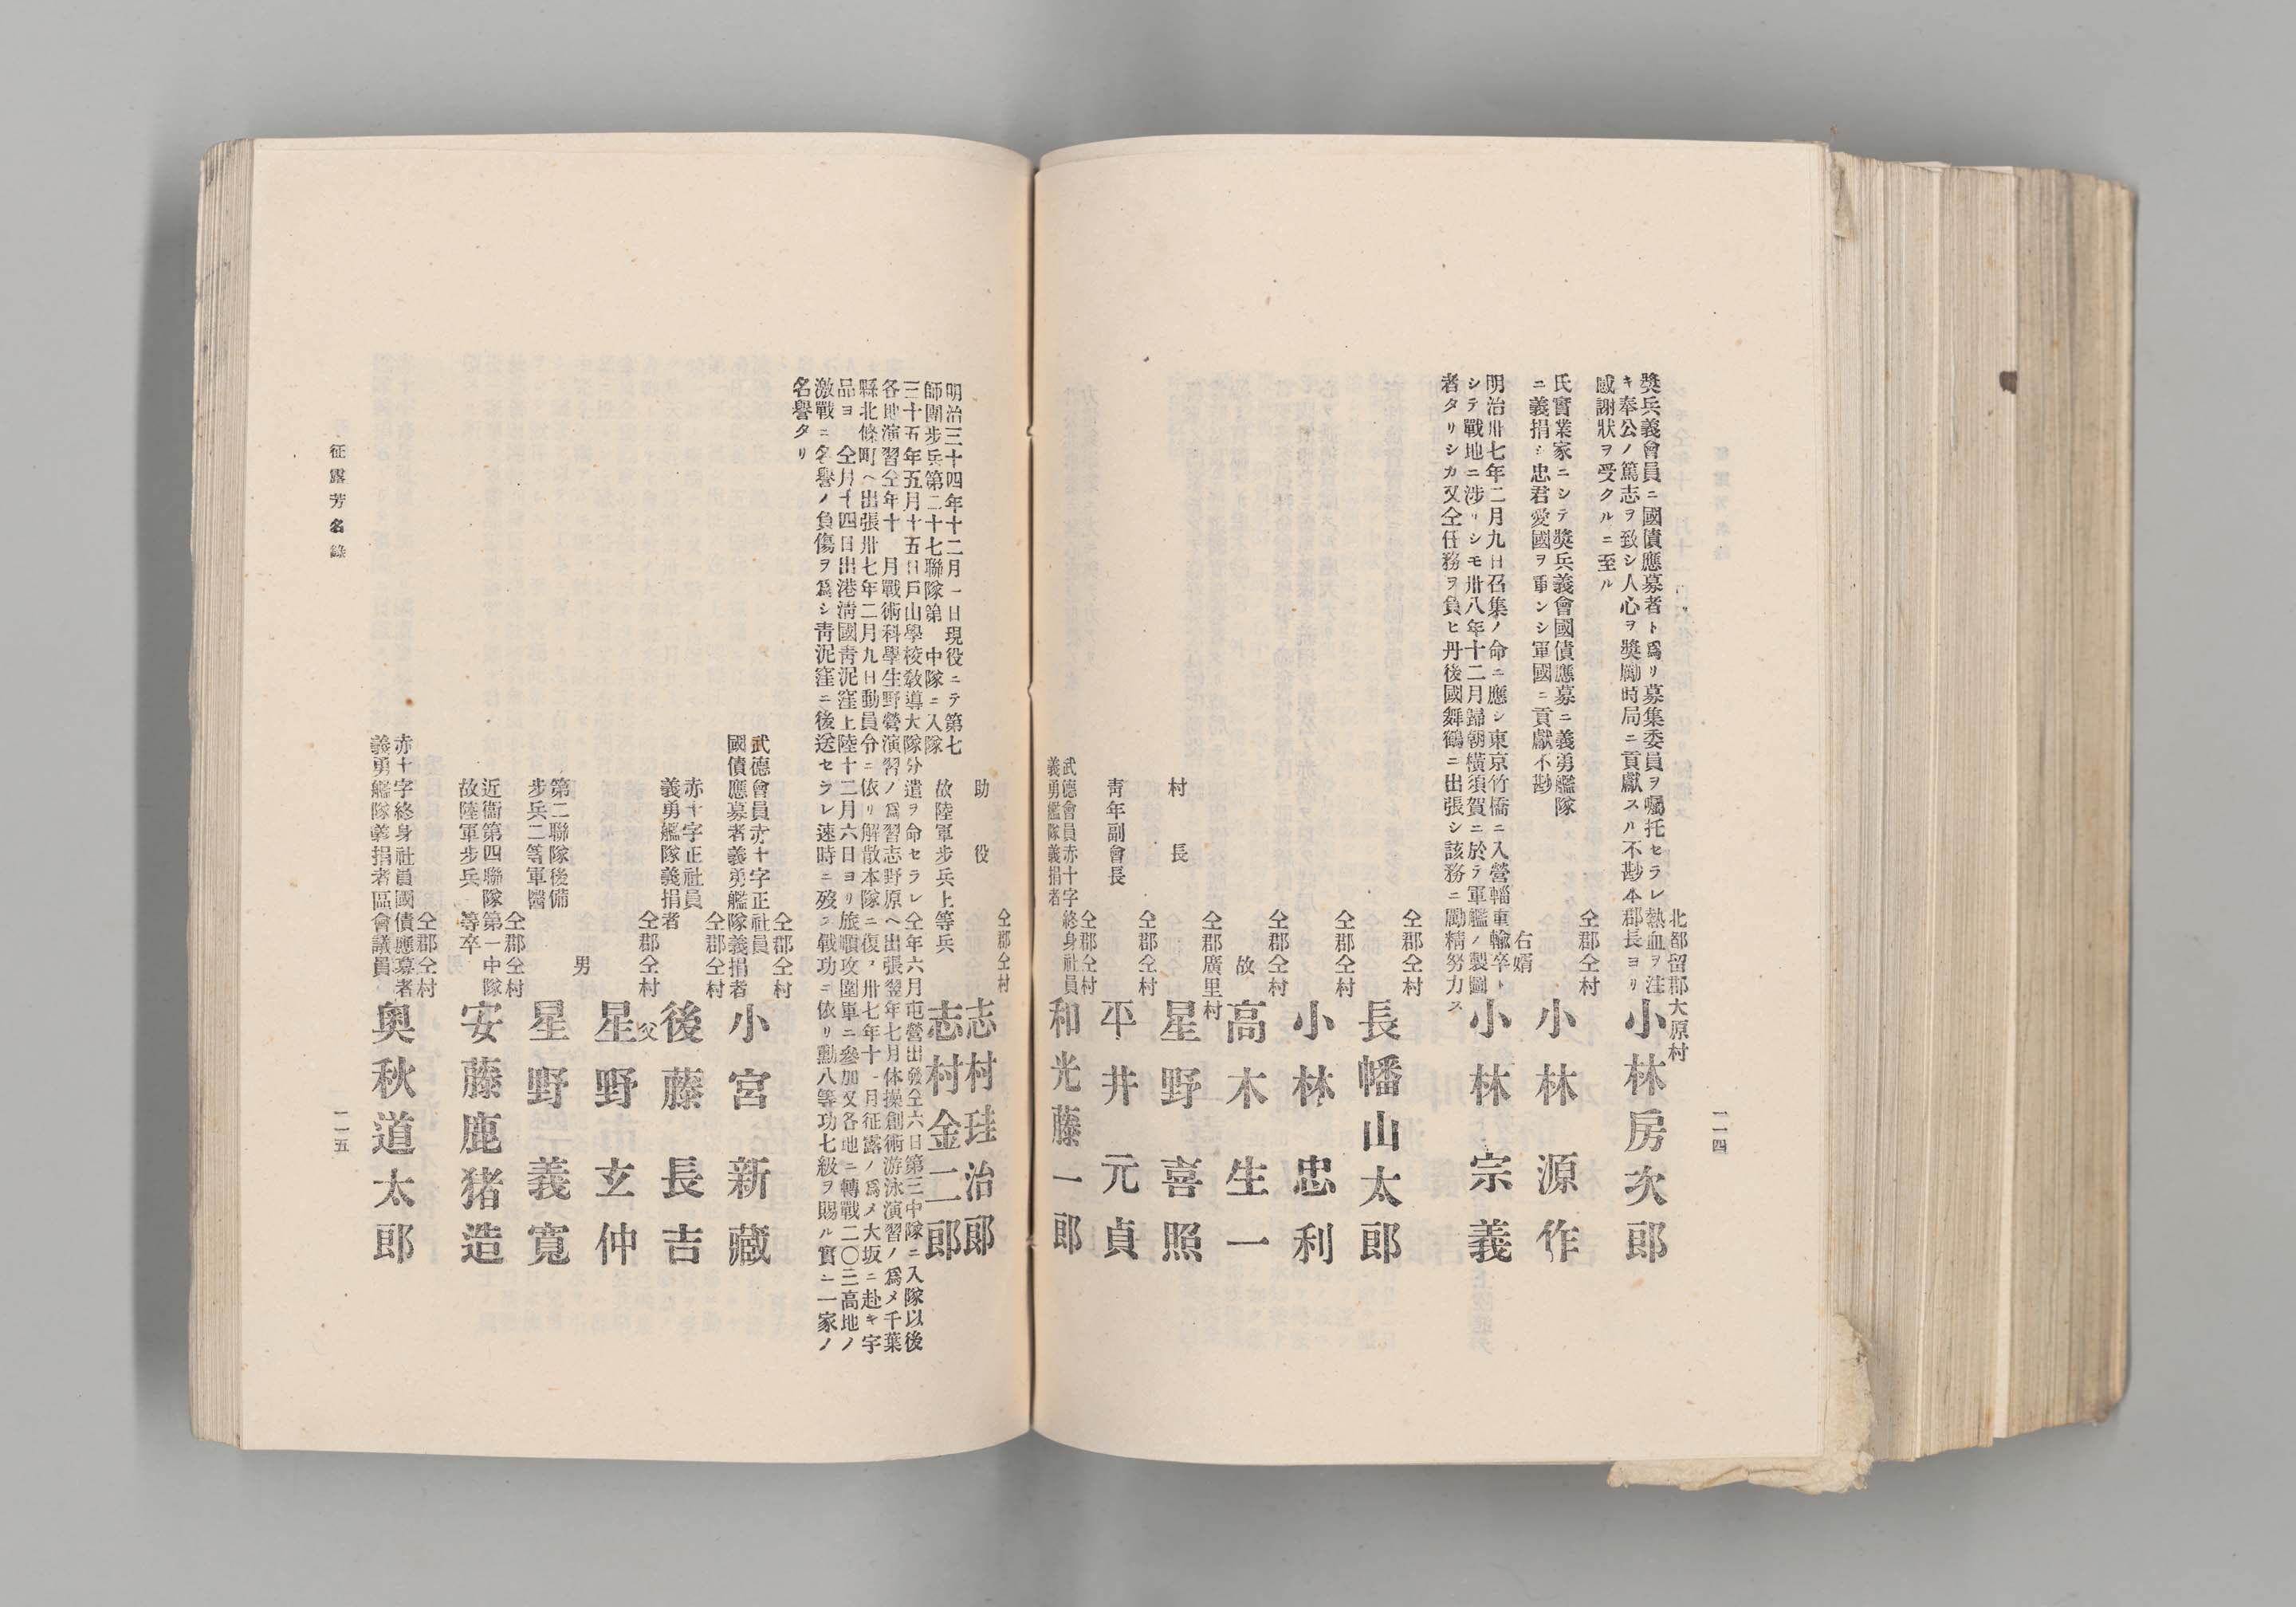 北都留郡大原村
小林房次郎
奬兵義會員ニ國債應募者ト爲リ募集委員ヲ囑托セラレ熱血ヲ注
キ奉公ノ篤志ヲ致シ人心ヲ奬勵時局ニ貢獻スル不尠本郡長ヨリ
感謝狀ヲ受クルニ至ル
仝郡仝村
小林源作
氏實業家ニシテ奬兵義會國債應募ニ義勇艦隊
ニ義捐シ忠君愛國ヲ重ンシ軍國ニ貢獻不尠
右婿
小林宗義
明治卅七年二月九日召集ノ命ニ應シ東京竹橋ニ入營輜重輸卒ト
シテ戰地ニ涉リシモ卅八年十二月歸朝橫須賀ニ於テ軍艦ノ製圖
者タリシカ又仝任務ヲ負ヒ丹後國舞鶴ニ出張シ該務ニ勵精努力ス
仝郡仝村
長幡山太郎
仝郡仝村
小林忠利
仝郡仝村
故
高木生一
仝郡廣里村
村長
星野喜照
仝郡仝村
靑年副會長
平井元貞
仝郡仝村
武德會員赤十字終身社員
義勇艦隊義捐者
和光藤一郎
一一四
仝郡仝村
助役
志村珪治郞
故陸軍步兵上等兵
志村金二郎
明治三十四年十二月一日現役ニテ第七
師團步兵第二十七聯隊第 中隊ニ入隊
三十五年五月十五日戶山學校敎導大隊分遣ヲ命セラレ仝年六月屯營出發仝六日第三中隊ニ入隊以後
各地演習仝年十 月戰術科學生野營演習ノ爲習志野原ヘ出張翌年七月体操創術游泳演習ノ爲メ千葉
縣北條町ヘ出張卅七年二月九日動員令ニ依リ解散本隊ニ復ス卅七年十一月征露ノ爲メ大坂ニ赴キ宇
品ヨ 仝月十四日出港淸國靑泥窪上陸十二月六日ヨリ旅順攻圍軍ニ參加又各地ニ轉戰二〇三高地ノ
激戰ニ名譽ノ負傷ヲ爲シ靑泥窪ニ後送セラレ速時ニ歿ス戰功ニ依リ勳八等功七級ヲ賜ル實ニ一家ノ
名譽タリ
仝郡仝村
武德會員赤十字正社員
國債應募者義勇艦隊義捐者
小宮新藏
仝郡仝村
赤十字正社員
義勇艦隊義捐者
後藤長吉
仝郡仝村
父
星野玄仲
男
第二聯隊後備
步兵二等軍醫
星野義寬
仝郡仝村
近衞第四聯隊第一中隊
故陸軍步兵 等卒
安藤鹿猪造
仝郡仝村
赤十字終身社員國債應募者
義勇艦隊義捐者區會議員
奥秋道太郎
征露芳名錄
一一五